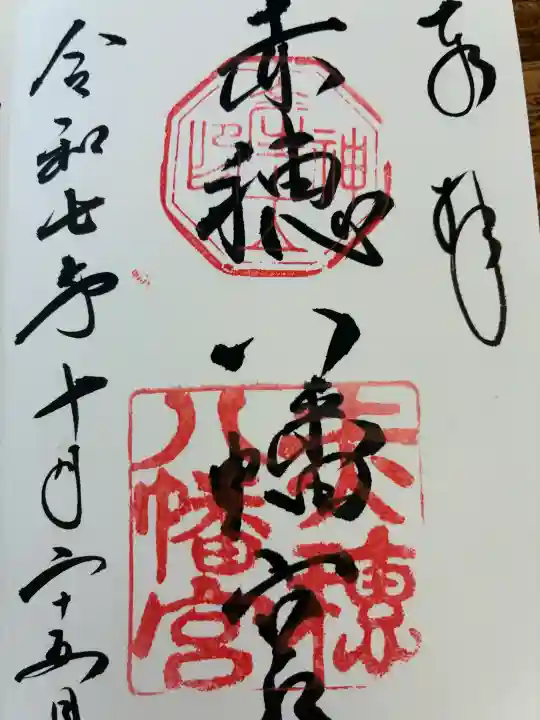 奉拝
赤穂八幡宮
赤穂
八幡宮
令和七年十月二十五日